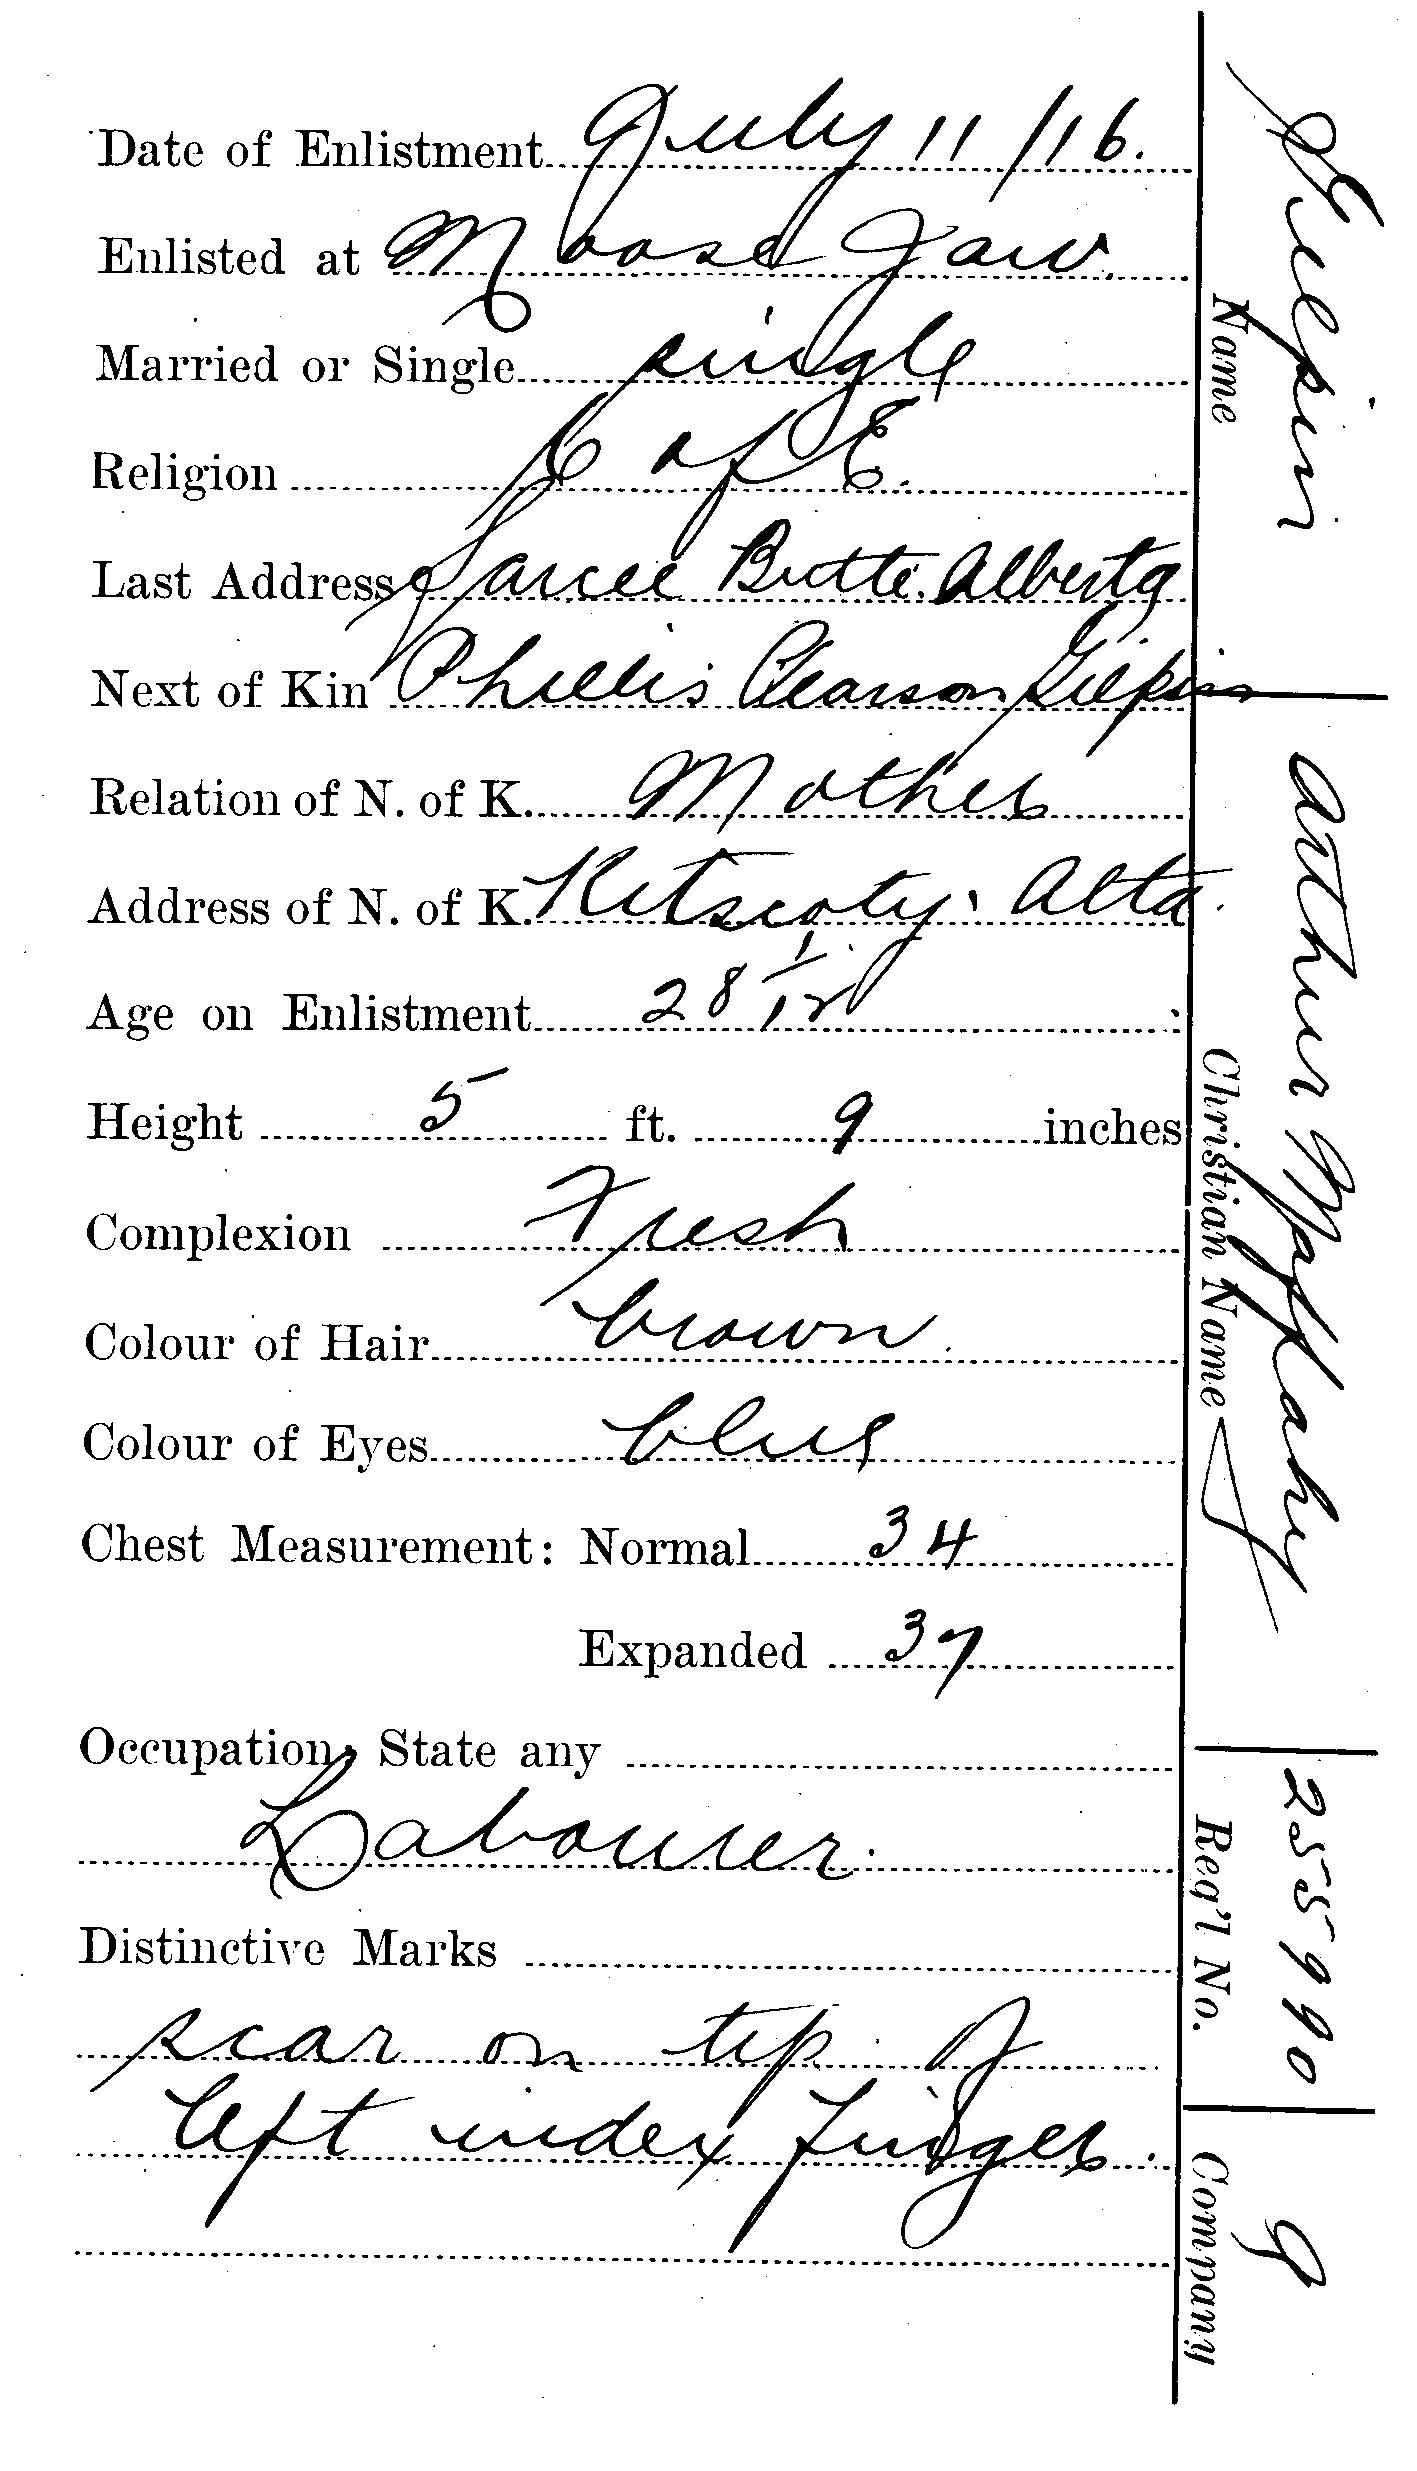 Date of Enlistment July 11/16.
Enlisted at Moose Jaw.
Married or Single single
Religion C of E.
Last Address Sarcee Butte. Alberta
Next of Kin Phillis Pearson Gilpin
Relation of N. of K. Mother
Address of N. of K. Kitscoty. Alta.
Age on Enlistment 28 1/12
Height 5 ft. 9 inches
Complexion Fresh
Colour of Hair brown.
Colour of Eyes blue
Chest Measurement: Normal 34
Expanded 37
Occupation, State any
Labourer.
Distinctive Marks
scar on tip of
left index finger.
Gilpin
Name
Arthur
Christian Name
255990
Reg'l No.
G
Company